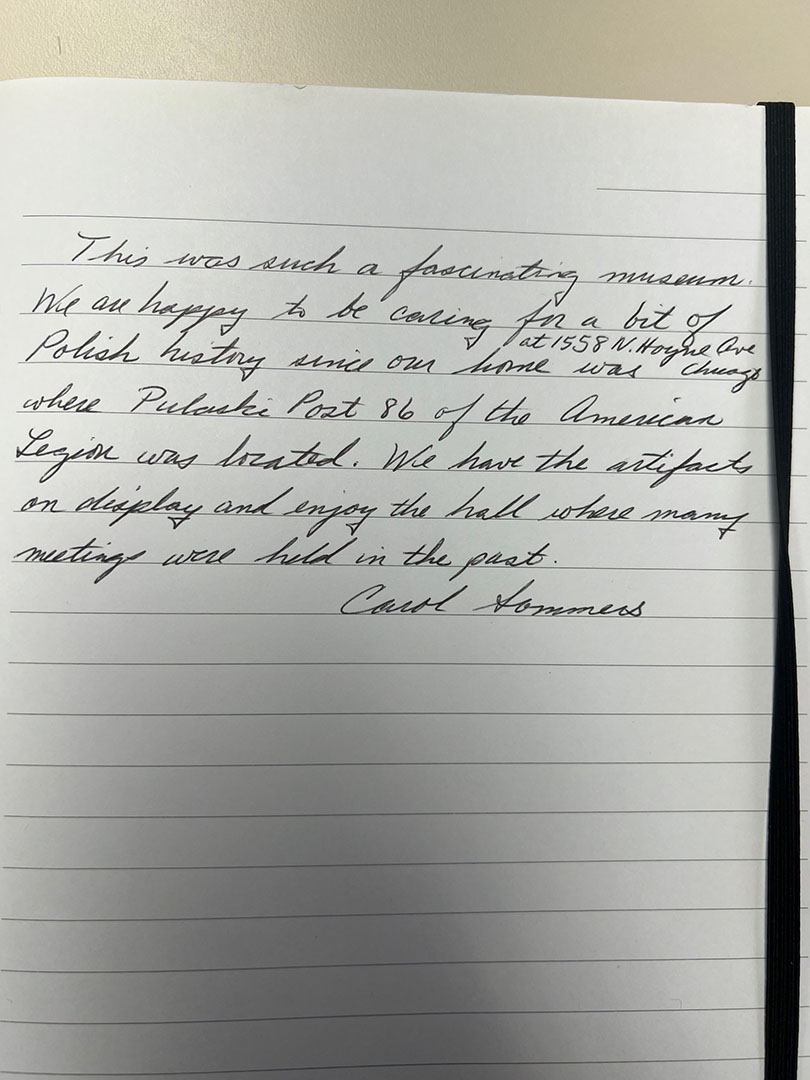 This was such a fascinating museum.
We are happy to be caring for a bit of
at 1558 N. Hoyne Ave
Polish history since our home was Chicago
where Pulaski Post 86 of the American
Legion was located. We have the artifacts
on display and enjoy the hall where many
meetings were held in the past.
Carol Sommers